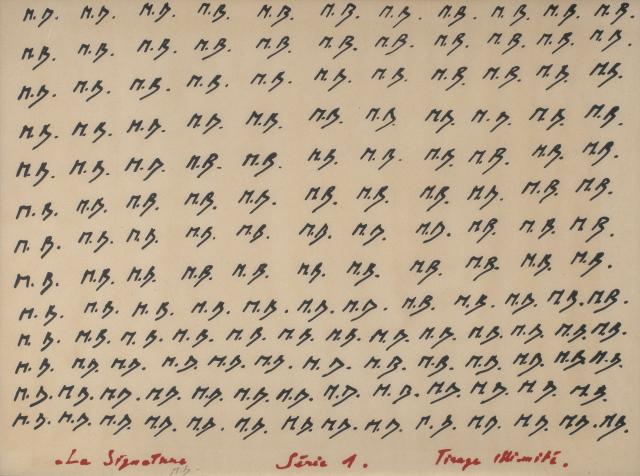 M.B. M.B. M.B. M.B. M.B. M.B. M.B. M.B. M.B. M.B. M.B.
M.B. M.B. M.B. M.B. M.B. M.B. M.B. M.B. M.B. M.B. M.B.
M.B. M.B. M.B. M.B. M.B. M.B. M.B. M.B. M.B. M.B. M.B.
M.B. M.B. M.B. M.B. M.B. M.B. M.B. M.B. M.B. M.B. M.B.
M.B. M.B. M.B. M.B. M.B. M.B. M.B. M.B. M.B. M.B. M.B.
M.B. M.B. M.B. M.B. M.B. M.B. M.B. M.B. M.B. M.B. M.B.
M.B. M.B. M.B. M.B. M.B. M.B. M.B. M.B. M.B. M.B. M.B.
M.B. M.B. M.B. M.B. M.B. M.B. M.B. M.B. M.B. M.B. M.B.
M.B. M.B. M.B. M.B. M.B. M.B. M.B. M.B. M.B. M.B. M.B. M.B.
M.B. M.B. M.B. M.B. M.B. M.B. M.B. M.B. M.B. M.B. M.B. M.B. M.B.
M.B. M.B. M.B. M.B. M.B. M.B. M.B. M.B. M.B. M.B. M.B. M.B. M.B.
M.B. M.B. M.B. M.B. M.B. M.B. M.B. M.B. M.B. M.B. M.B. M.B. M.B.
M.B. M.B. M.B. M.B. M.B. M.B. M.B. M.B. M.B. M.B. M.B. M.B. M.B. M.B.
La Signature Série 1. Tirage illimité.
M.B.